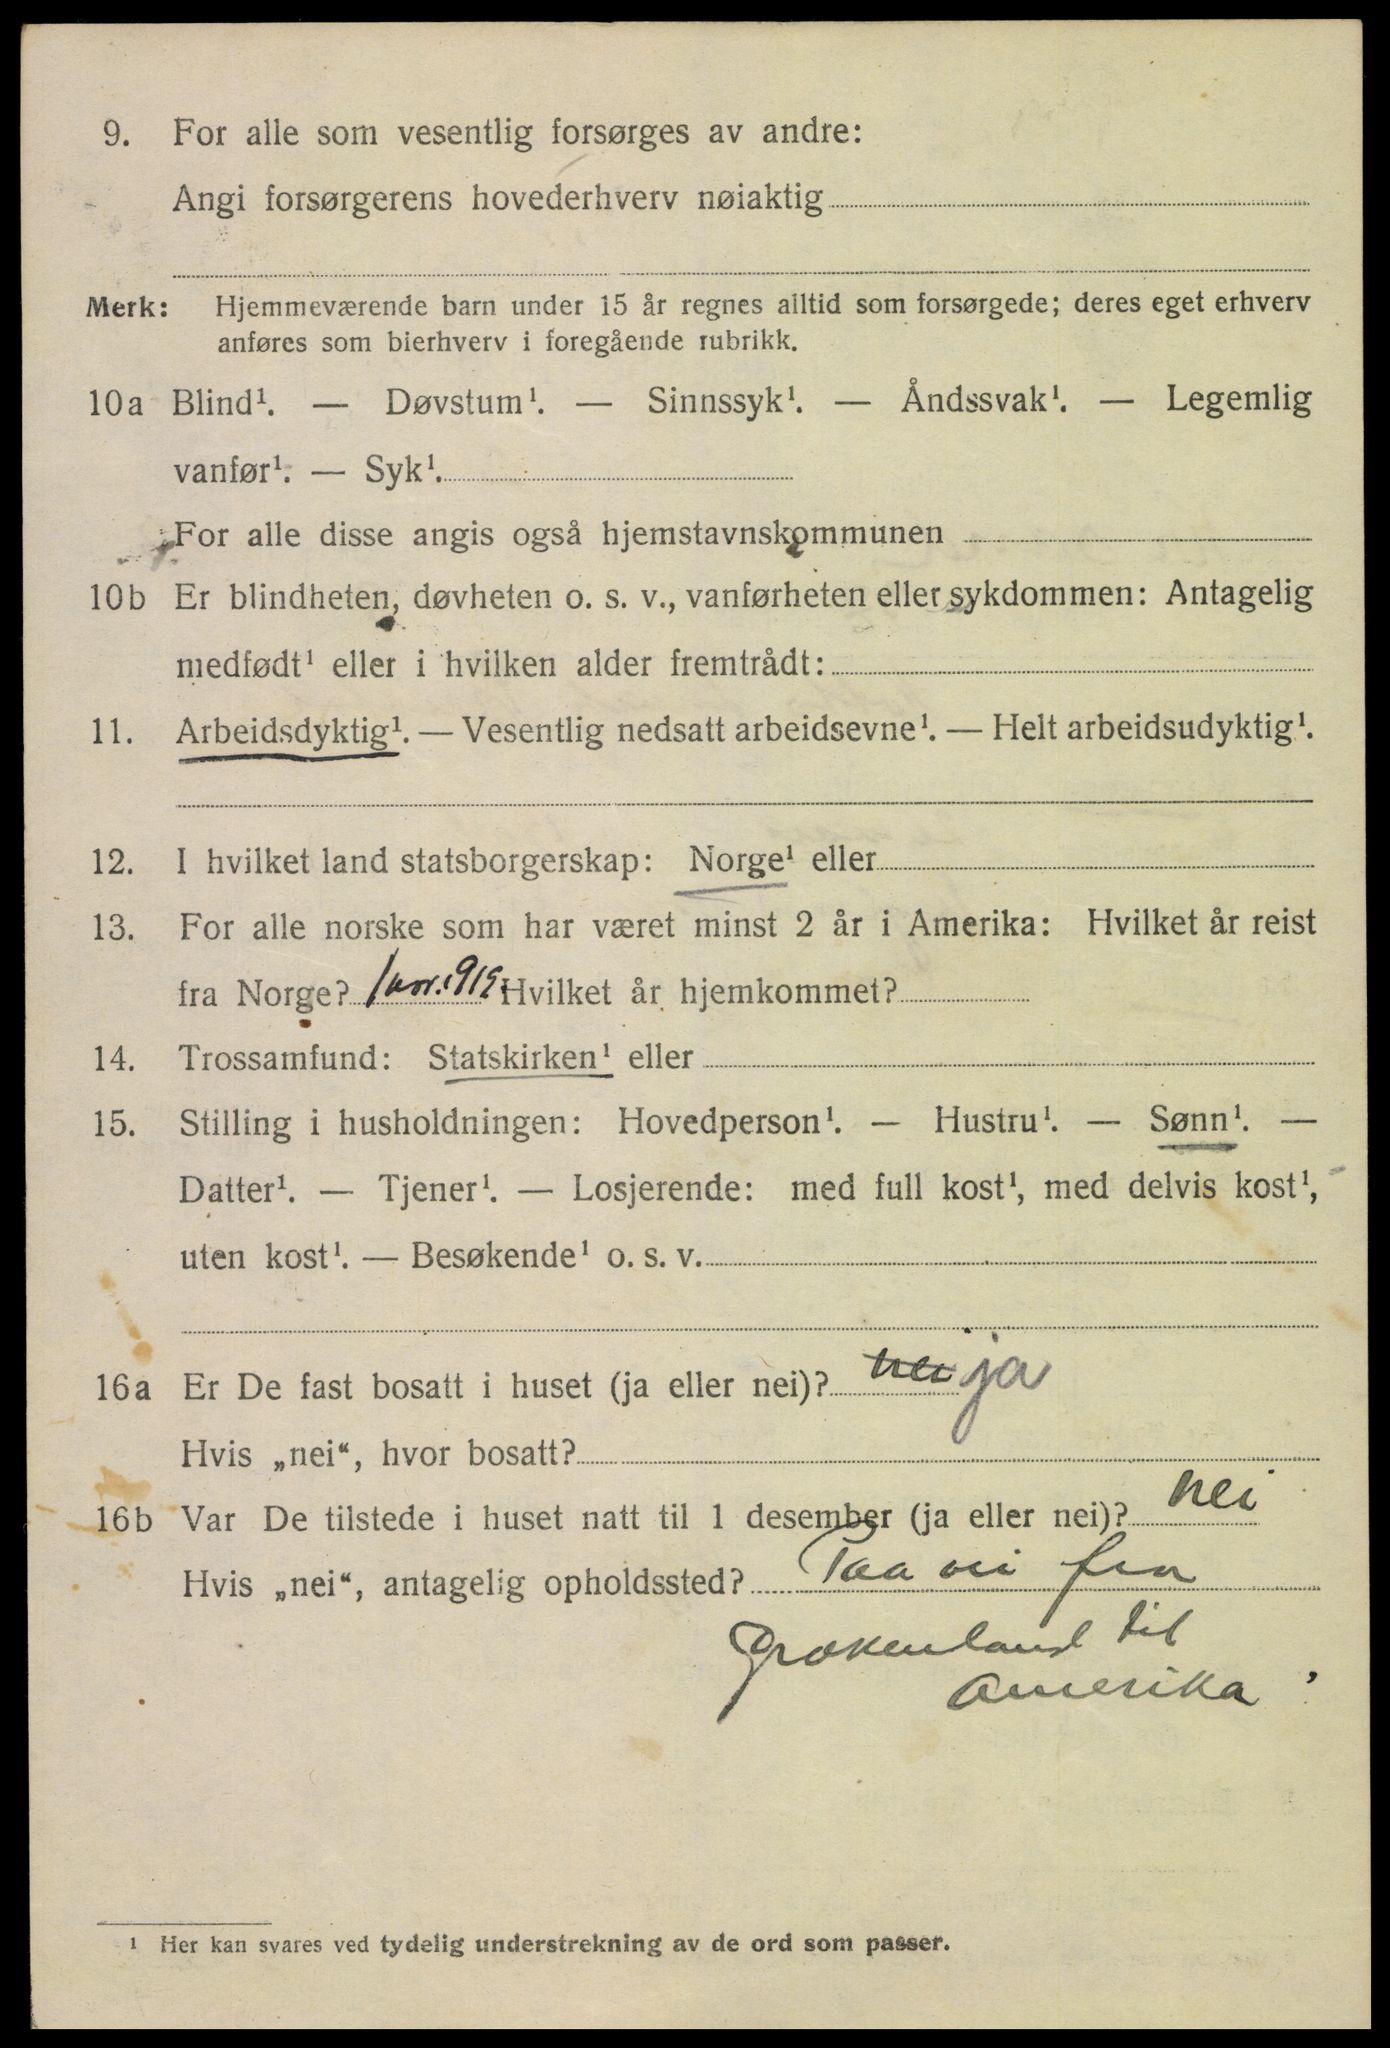 9. For alle som vesentlig forsørges av andre:
Angi forsørgerens hovederhverv nøiaktig
Merk: Hjemmeværende barn under 15 år regnes alltid som forsørgede; deres eget erhverv
anføres som bierhverv i foregående rubrikk.
10a Blind¹. — Døvstum¹. — Sinnssyk¹. — Åndssvak¹. — Legemlig
vanfør¹. — Syk¹.
For alle disse angis også hjemstavnskommunen
10b Er blindheten, døvheten o. s. v., vanførheten eller sykdommen: Antagelig
medfødt¹ eller i hvilken alder fremtrådt:
11. Arbeidsdyktig¹. — Vesentlig nedsatt arbeidsevne¹. — Helt arbeidsudyktig¹.
12. I hvilket land statsborgerskap: Norge¹ eller
13. For alle norske som har været minst 2 år i Amerika: Hvilket år reist
fra Norge? Hvilket år hjemkommet?
14. Trossamfund: Statskirken¹ eller
15. Stilling i husholdningen: Hovedperson¹. — Hustru¹. — Sønn¹. —
Datter¹. — Tjener¹. — Losjerende: med full kost¹, med delvis kost¹,
uten kost¹. — Besøkende¹ o. s. v.
16a Er De fast bosatt i huset (ja eller nei)? nei ja
Hvis „nei“, hvor bosatt?
16b Var De tilstede i huset natt til 1 desember (ja eller nei)? nei
Hvis „nei“, antagelig opholdssted? Paa vei fra
Grækenland til
Amerika
¹ Her kan svares ved tydelig understrekning av de ord som passer.